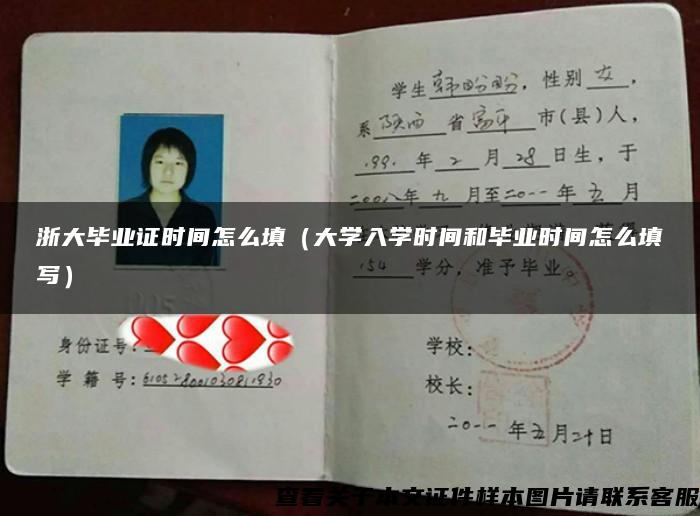 学生韩盼盼，性别女，
系陕西省富平市(县)人，
1991年2月28日生，于
二00八年九月至二0一一年五月
浙大毕业证时间怎么填（大学入学时间和毕业时间怎么填
写）
154学分，准予毕业。
身份证号:
学籍号:610528001030811930
学校:
校长:
二0一一年五月二十日
查看关于本文证件样本图片请联系客服